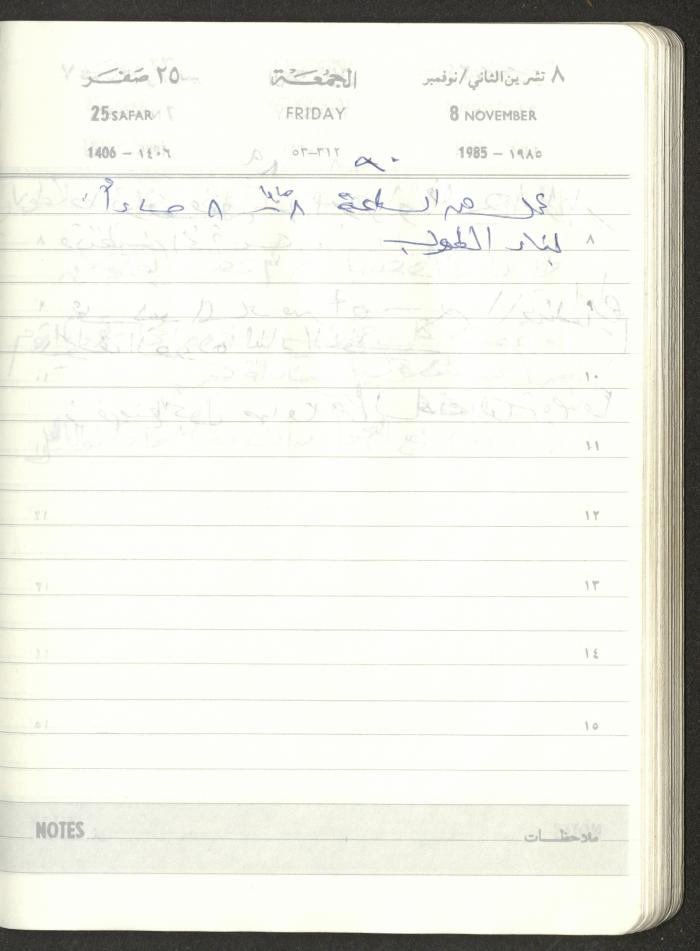 ٨ تشرين الثاني/نوفمبر الجمعـة ٢٥ صفـر
8 NOVEMBER FRIDAY 25 SAFAR
1985 – ١٩٨٥ ٣١٢–٥٣ 1406 – ١٤٠٦
عمل من الساعة ٨ صباحا ٨ مساءاً
لبناء الطوب
٨
٩
١٠
١١
١٢
١٣
١٤
١٥
ملاحظـات NOTES